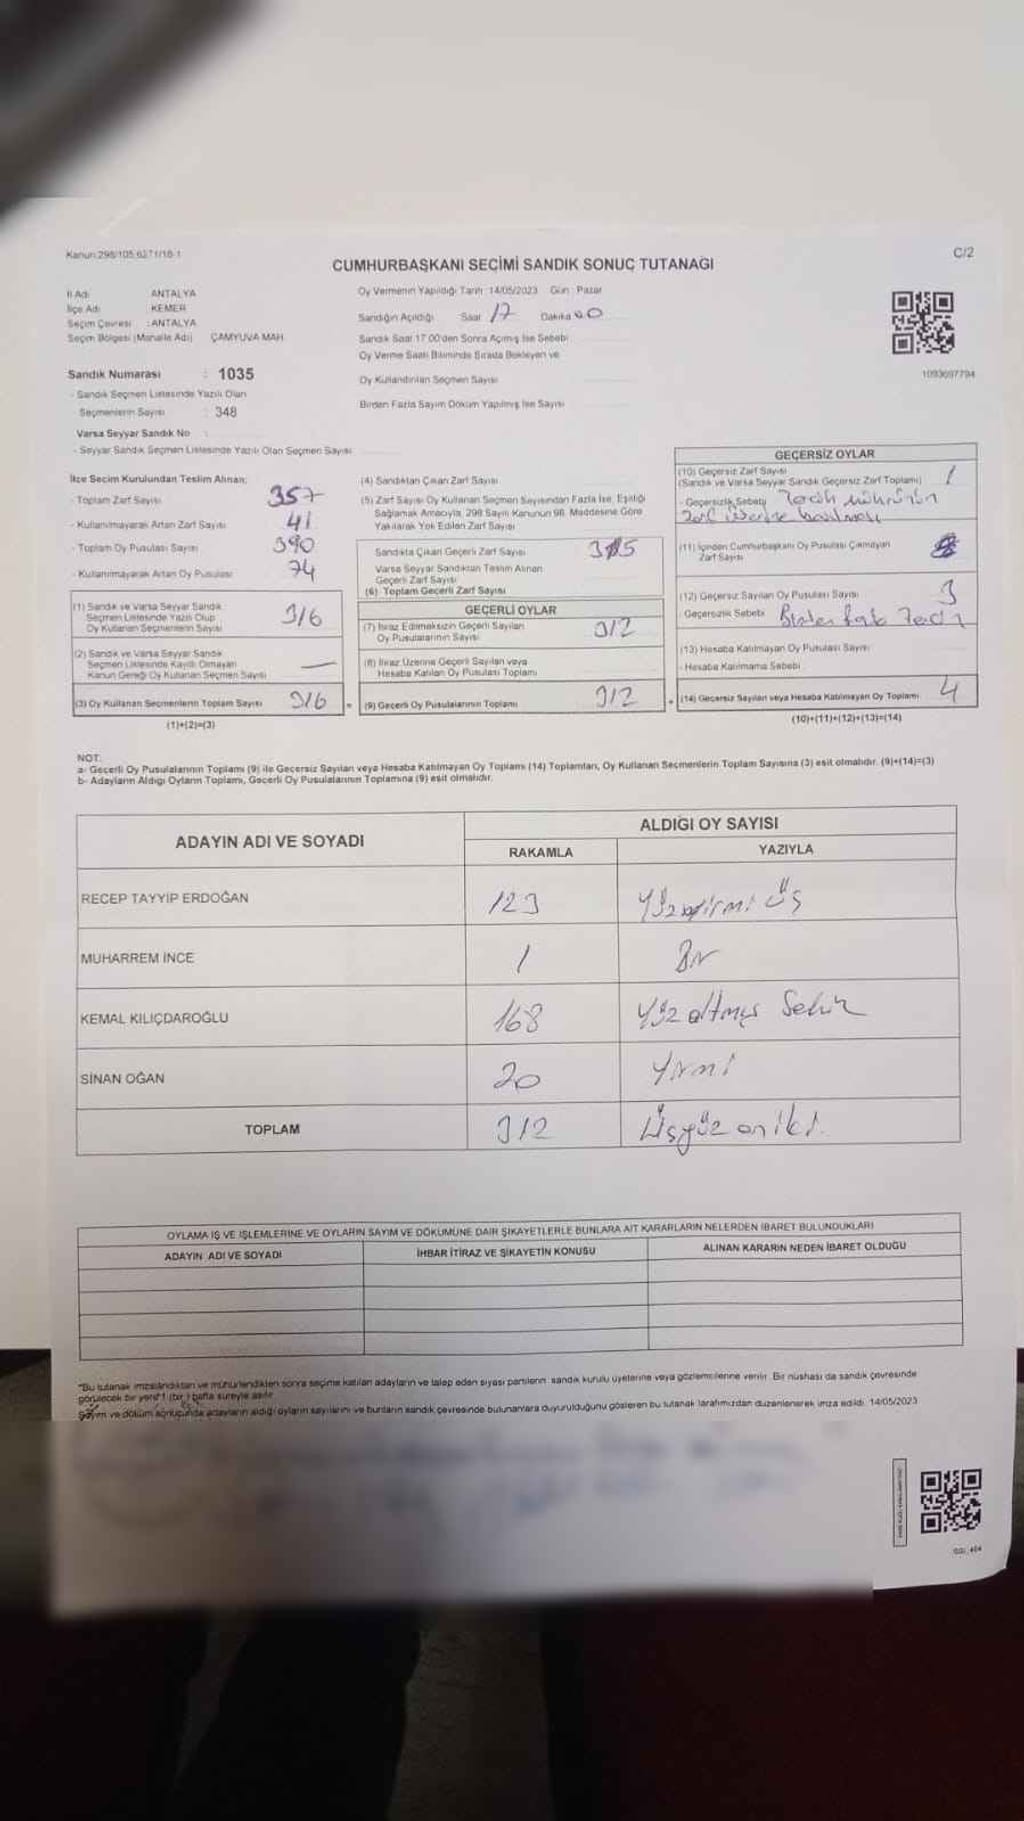 Kanun:298/105,6271/18-1
C/2
CUMHURBAŞKANI SEÇİMİ SANDIK SONUÇ TUTANAĞI
İl Adı ANTALYA
İlçe Adı KEMER
Seçim Çevresi : ANTALYA
Seçim Bölgesi (Mahalle Adı) ÇAMYUVA MAH.
Sandık Numarası : 1035
- Sandık Seçmen Listesinde Yazılı Olan
Seçmenlerin Sayısı : 348
Varsa Seyyar Sandık No :
- Seyyar Sandık Seçmen Listesinde Yazılı Olan Seçmen Sayısı
Oy Vermenin Yapıldığı Tarih :14/05/2023 Gün : Pazar
Sandığın Açıldığı Saat 17 Dakika 00
Sandık Saat 17:00'den Sonra Açılmış İse Sebebi
Oy Verme Saati Bitiminde Sırada Bekleyen ve
Oy Kullandırılan Seçmen Sayısı
Birden Fazla Sayım Döküm Yapılmış İse Sayısı
1093697794
İlçe Seçim Kurulundan Teslim Alınan;
- Toplam Zarf Sayısı 357
- Kullanılmayarak Artan Zarf Sayısı 41
- Toplam Oy Pusulası Sayısı 390
- Kullanılmayarak Artan Oy Pusulası 74
(1) Sandık ve Varsa Seyyar Sandık
Seçmen Listesinde Yazılı Olup
Oy Kullanan Seçmenlerin Sayısı 316
(2) Sandık ve Varsa Seyyar Sandık
Seçmen Listesinde Kayıtlı Olmayan
Kanun Gereği Oy Kullanan Seçmen Sayısı —
(3) Oy Kullanan Seçmenlerin Toplam Sayısı 316
(1)+(2)=(3)
(4) Sandıktan Çıkan Zarf Sayısı
(5) Zarf Sayısı Oy Kullanan Seçmen Sayısından Fazla İse, Eşitliği
Sağlamak Amacıyla, 298 Sayılı Kanunun 98. Maddesine Göre
Yakılarak Yok Edilen Zarf Sayısı
Sandıkta Çıkan Geçerli Zarf Sayısı 315
Varsa Seyyar Sandıktan Teslim Alınan
Geçerli Zarf Sayısı
(6) Toplam Geçerli Zarf Sayısı
GEÇERLİ OYLAR
(7) İtiraz Edilmeksizin Geçerli Sayılan
Oy Pusulalarının Sayısı 312
(8) İtiraz Üzerine Geçerli Sayılan veya
Hesaba Katılan Oy Pusulası Toplamı
= (9) Geçerli Oy Pusulalarının Toplamı 312
GEÇERSİZ OYLAR
(10) Geçersiz Zarf Sayısı 1
(Sandık ve Varsa Seyyar Sandık Geçersiz Zarf Toplamı)
- Geçersizlik Sebebi Tercih mührünün
Zarf üzerine basılması
(11) İçinden Cumhurbaşkanı Oy Pusulası Çıkmayan
Zarf Sayısı
(12) Geçersiz Sayılan Oy Pusulası Sayısı 3
- Geçersizlik Sebebi
(13) Hesaba Katılmayan Oy Pusulası Sayısı
- Hesaba Katılmama Sebebi
+ (14) Geçersiz Sayılan veya Hesaba Katılmayan Oy Toplamı 4
(10)+(11)+(12)+(13)=(14)
NOT:
a- Geçerli Oy Pusulalarının Toplamı (9) ile Geçersiz Sayılan veya Hesaba Katılmayan Oy Toplamı (14) Toplamları, Oy Kullanan Seçmenlerin Toplam Sayısına (3) eşit olmalıdır. (9)+(14)=(3)
b- Adayların Aldığı Oyların Toplamı, Geçerli Oy Pusulalarının Toplamına (9) eşit olmalıdır.
ADAYIN ADI VE SOYADI
ALDIĞI OY SAYISI
RAKAMLA YAZIYLA
RECEP TAYYİP ERDOĞAN 123 Yüzyirmi Üç
MUHARREM İNCE 1 Bir
KEMAL KILIÇDAROĞLU 168 Yüz altmış Sekiz
SİNAN OĞAN 20 Yirmi
TOPLAM 312 Üçyüz on iki.
OYLAMA İŞ VE İŞLEMLERİNE VE OYLARIN SAYIM VE DÖKÜMÜNE DAİR ŞİKAYETLERLE BUNLARA AİT KARARLARIN NELERDEN İBARET BULUNDUKLARI
ADAYIN ADI VE SOYADI İHBAR İTİRAZ VE ŞİKAYETİN KONUSU ALINAN KARARIN NEDEN İBARET OLDUĞU
"Bu tutanak imzalandıktan ve mühürlendikten sonra seçime katılan adayların ve talep eden siyasi partilerin sandık kurulu üyelerine veya gözlemcilerine verilir. Bir nüshası da sandık çevresinde
görülecek bir yere 1 (bir) hafta süreyle asılır.
Sayım ve döküm sonucunda adayların aldığı oyların sayılarını ve bunların sandık çevresinde bulunanlara duyurulduğunu gösteren bu tutanak tarafımızdan düzenlenerek imza edildi. 14/05/2023